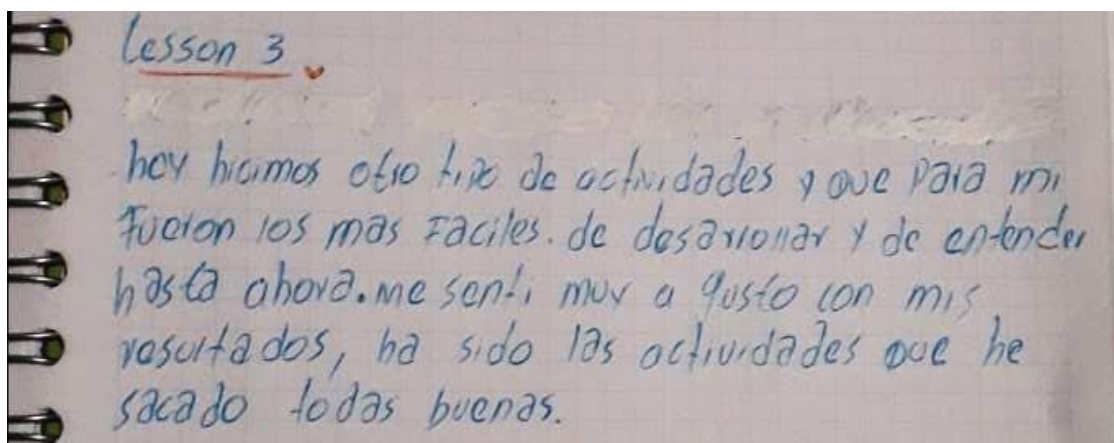 Lesson 3
hoy hicimos otro tipo de actividades y que para mi
fueron los mas faciles. de desarrollar y de entender
hasta ahora. me senti muy a gusto con mis
resultados, ha sido las actividades que he
sacado todas buenas.